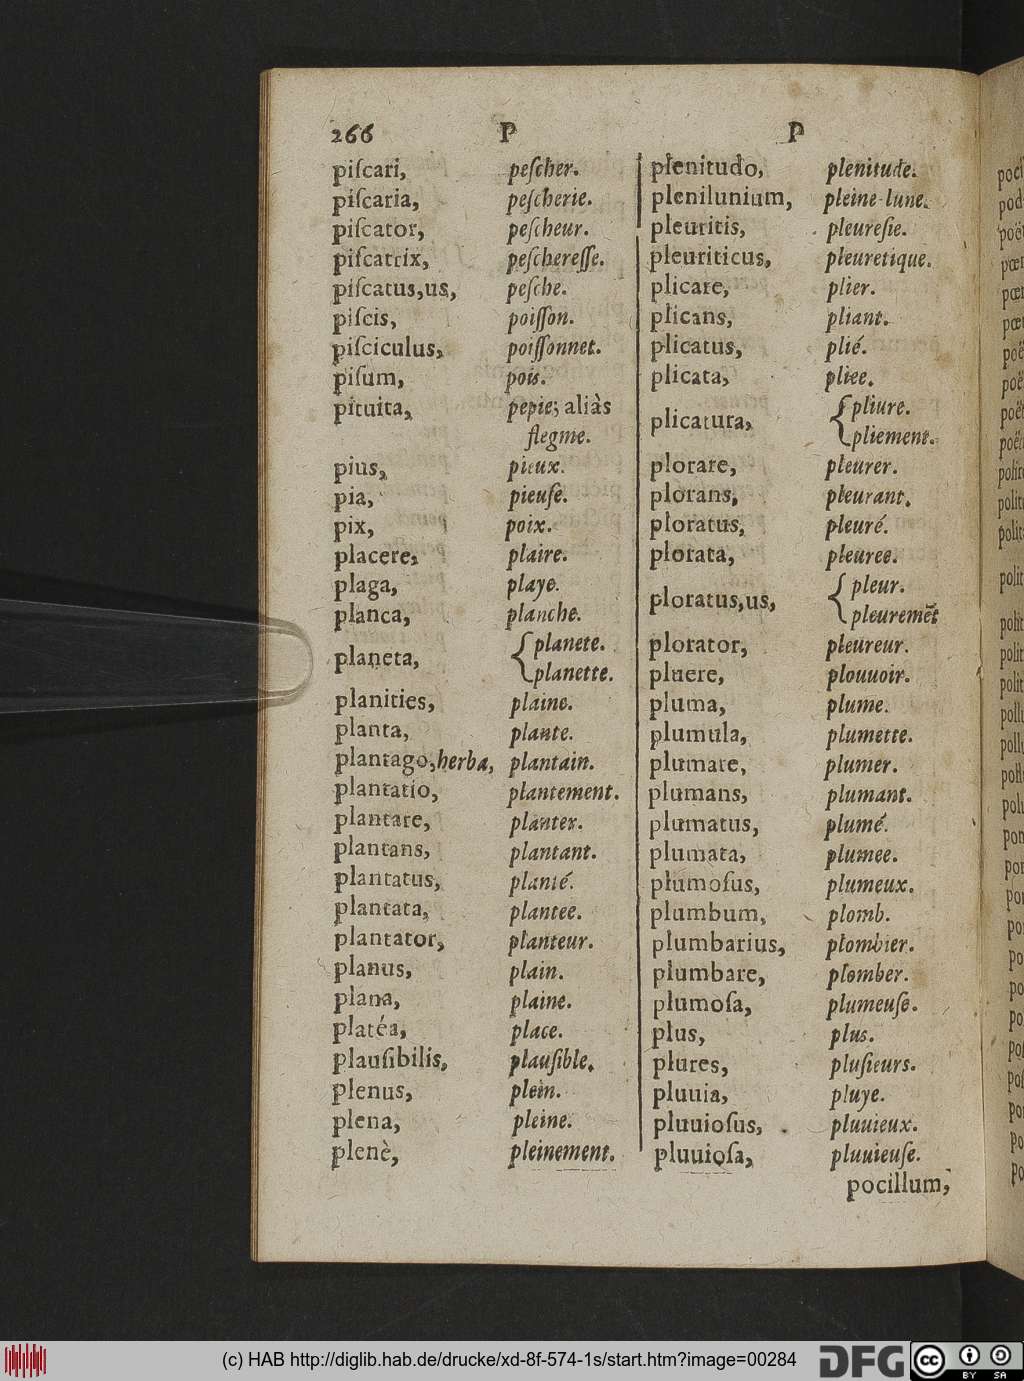 266 P P
piſcari, peſcher.
piſcaria, peſcherie.
piſcator, peſcheur.
piſcatrix, peſchereſſe.
piſcatus,us, peſche.
piſcis, poiſſon.
piſciculus, poiſſonnet.
piſum, pois.
pituita, pepie; aliàs
flegme.
pius, pieux.
pia, pieuſe.
pix, poix.
placere, plaire.
plaga, playe.
planca, planche.
planeta, { planete.
planette.
planities, plaine.
planta, plante.
plantago,herba, plantain.
plantatio, plantement.
plantare, planter.
plantans, plantant.
plantatus, planté.
plantata, plantee.
plantator, planteur.
planus, plain.
plana, plaine.
platéa, place.
plauſibilis, plauſible.
plenus, plein.
plena, pleine.
plenè, pleinement.
plenitudo, plenitude.
plenilunium, pleine-lune.
pleuritis, pleureſie.
pleuriticus, pleuretique.
plicare, plier.
plicans, pliant.
plicatus, plié.
plicata, pliee.
plicatura, { pliure.
pliement.
plorare, pleurer.
plorans, pleurant.
ploratus, pleuré.
plorata, pleuree.
ploratus,us, { pleur.
pleuremẽt
plorator, pleureur.
pluere, plouuoir.
pluma, plume.
plumula, plumette.
plumare, plumer.
plumans, plumant.
plumatus, plumé.
plumata, plumee.
plumoſus, plumeux.
plumbum, plomb.
plumbarius, plombier.
plumbare, plomber.
plumoſa, plumeuſe.
plus, plus.
plures, pluſieurs.
pluuia, pluye.
pluuioſus, pluuieux.
pluuioſa, pluuieuſe.
pocillum,
(c) HAB http://diglib.hab.de/drucke/xd-8f-574-1s/start.htm?image=00284
DFG
cc BY SA